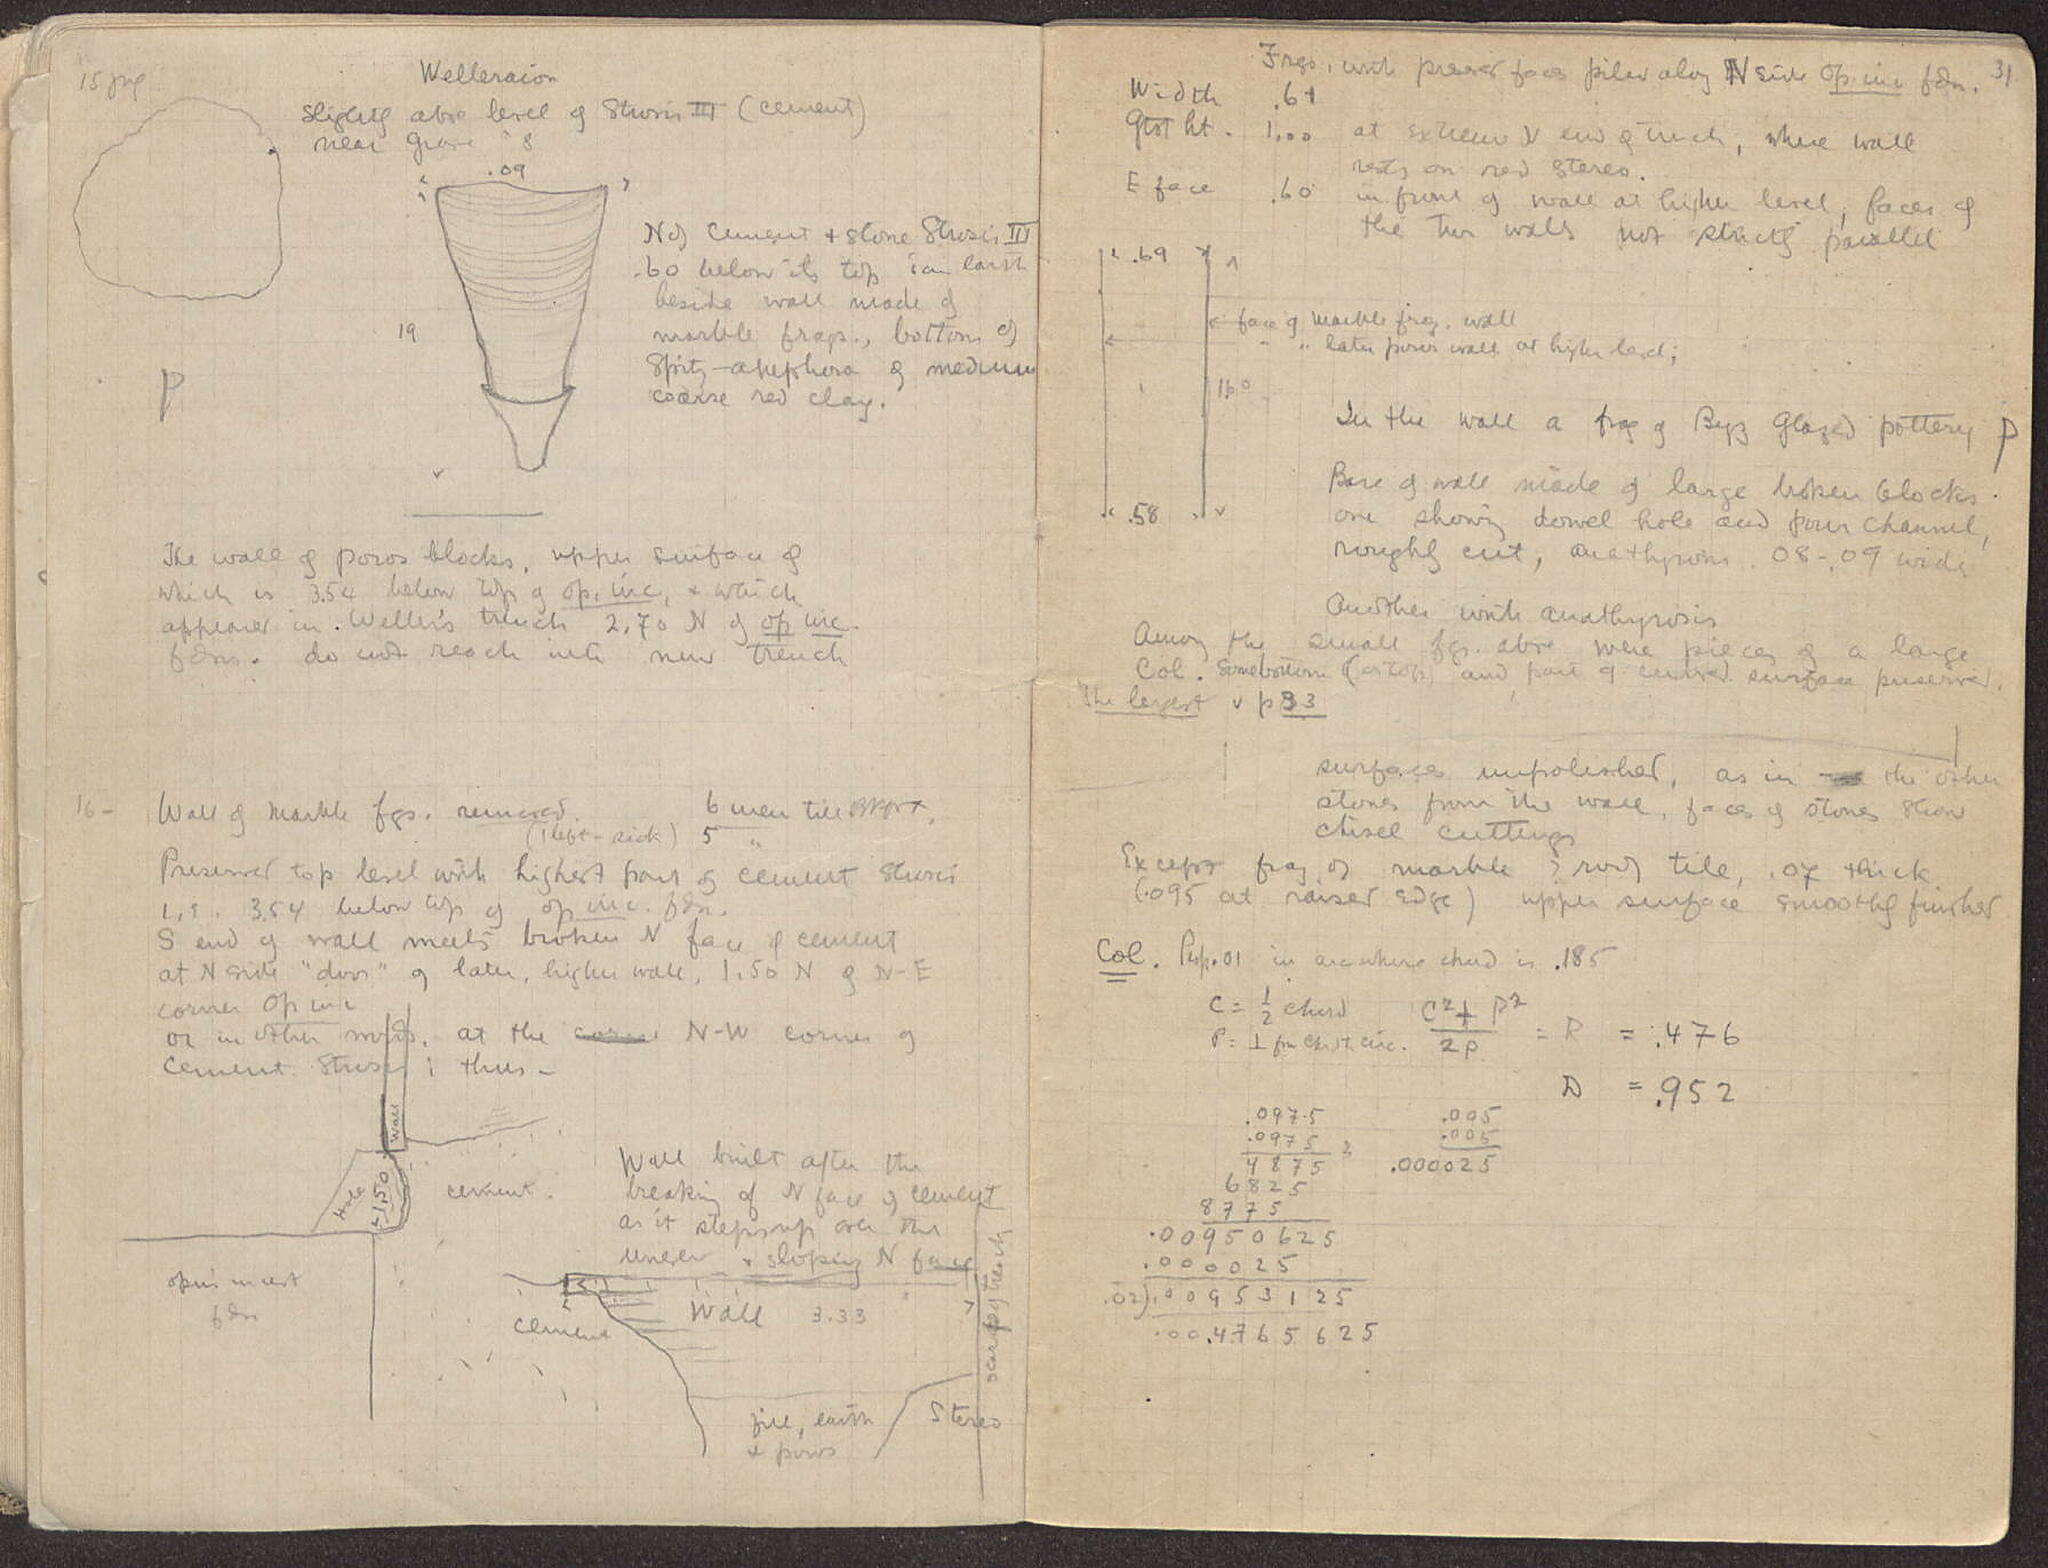 15
Welleraion
slightly above level of Strosis III (cement)
near Grave 8
.09
19
N of cement + stone Strosis III
.60 below its top in earth
beside wall made of
marble frags., bottom of
Spitz-amphora of medium
coarse red clay.
P
The wall of poros blocks, upper surface of
which is 3.54 below top of op. inc., + which
appeared in Weller's trench 2.70 N of op inc.
fdns. do not reach into new trench
16 -
Wall of marble fgs. removed.
6 men till
(1 left - sick) 5 "
Preserved top level with highest part of cement Strosis
i.e. 3.54 below top of op inc. fdn.
S end of wall meets broken N face of cement
at N side "door" of later, higher wall, 1.50 N of N-E
corner op inc
or in other words, at the N-W corner of
cement Strosis ; thus -
Wall
Hole
1.50
cement.
opus incert
fdn
Wall built after the
breaking of N face of cement
as it steps up over the
uneven + sloping N face
cement
Wall 3.33
scarp of trench
fill, earth
+ poros
Stereo
31
Frgs. with preserved faces piled along N side op. inc fdn.
Width .61
Gtst ht. 1.00 at extreme N end of trench, where wall
rests on red stereo.
E face .60 in front of wall at higher level, faces of
the two walls not strictly parallel
.69
face of marble frag. wall
" " later poros wall at higher level;
1.60
.58
In the wall a frag of Byz glazed pottery P
Base of wall made of large broken blocks.
one showing dowel hole and pour channel,
roughly cut, anathyrosis .08-.09 wide
Another with anathyrosis
Among the small fgs. above were pieces of a large
Col. Some bottom (or top) and part of curved surface preserved.
The largest v p 33
surfaces unpolished, as in the other
stones from the wall, faces of stones show
chisel cuttings
Except frag of marble ? roof tile, .07 thick
(.095 at raised edge) upper surface smoothly finished
Col. Perp .01 in arc where chord is .185
C = ½ chord
C² + P² / 2P = R = .476
P = ⊥ fm chd to circ.
D = .952
.0975
.0975
4875
6825
8775
.00950625
.000025
.02).00953125
.00.4765625
.005
.005
.000025